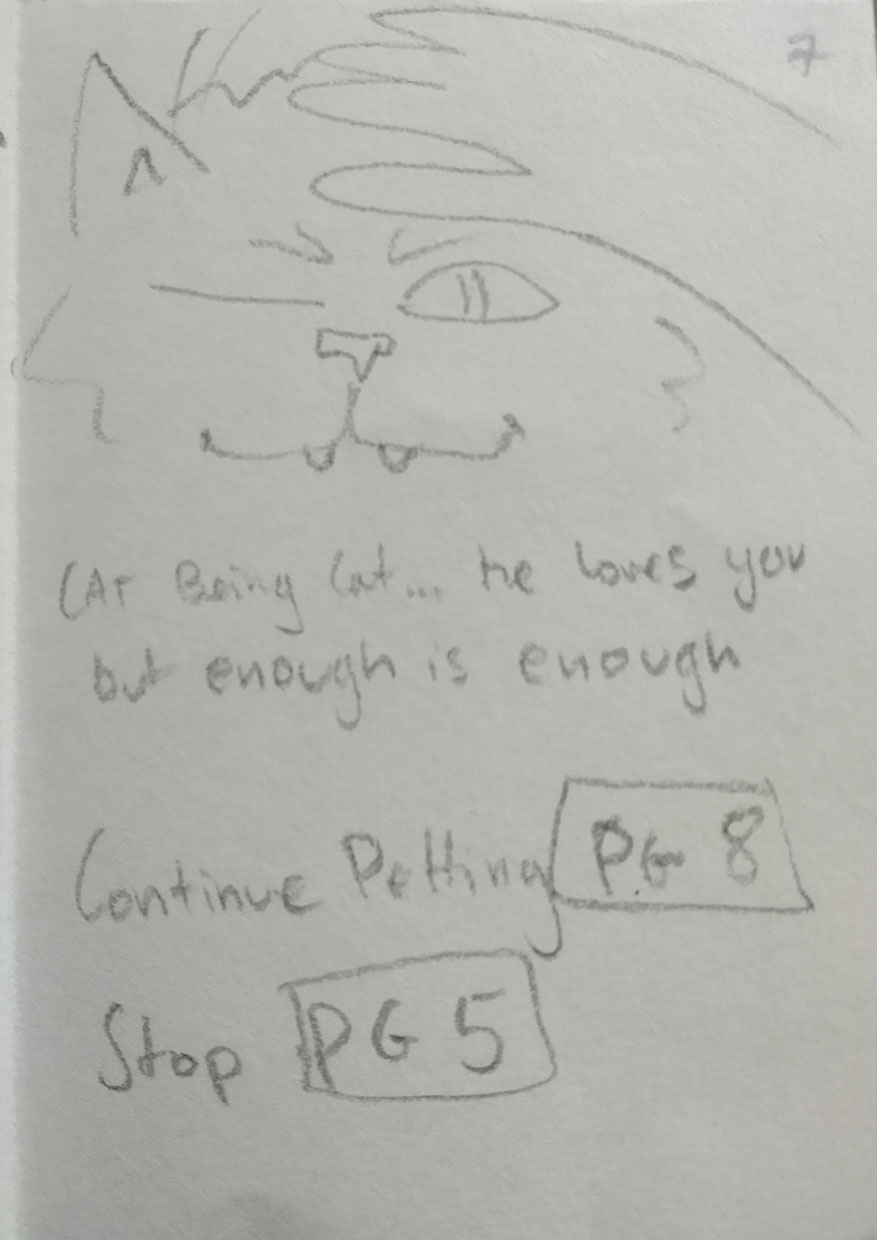 7
CAT Being Cat... He loves you
but enough is enough
Continue Petting PG 8
Stop PG 5